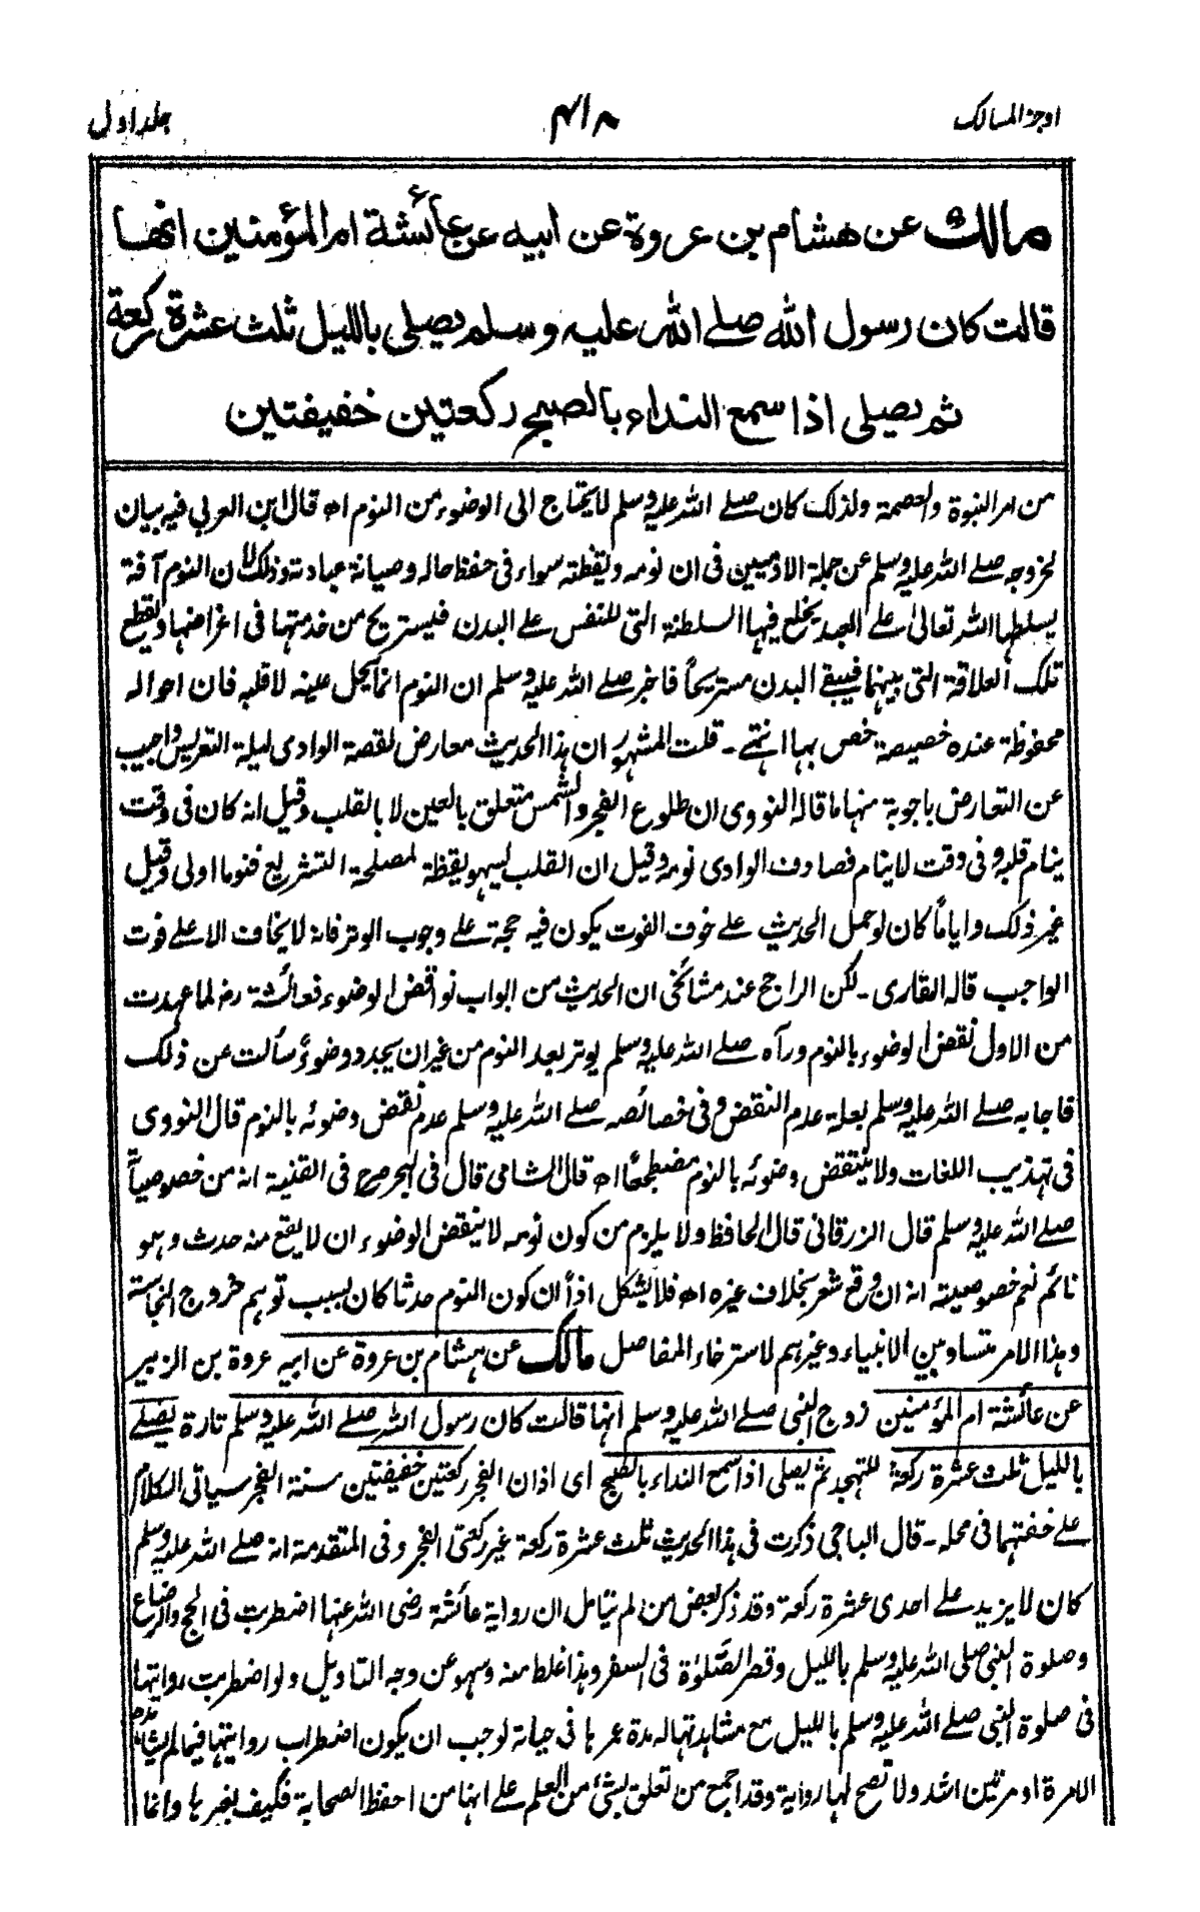 اوجز المسالك
٤١٨
جلد اول
مالك عن هشام بن عروة عن ابيه عن عائشة ام المؤمنين انها
قالت كان رسول الله صلے الله عليه وسلم يصلي بالليل ثلث عشرة ركعة
ثم يصلي اذا سمع النداء بالصبح ركعتين خفيفتين
من امر النبوة والعصمة ولذلك كان صلے الله عليه وسلم لا يحتاج الى الوضوء من النوم اه قال ابن العربي فيه بيان
لخروجه صلے الله عليه وسلم عن جملة الادميين فى ان نومه ويقظته سواء فى حفظ حاله وصيانة عبادته وذلك لان النوم آفة
يسلطها الله تعالىٰ علے العبد يخلع فيها السلطنة التى للنفس علے البدن فيستريح من خدمتها فى اغراضها ويقطع
تلك العلاقة التى بينهما فيبقے البدن مستريحاً فاخبر صلے الله عليه وسلم ان النوم انما يحل عينه لا قلبه فان احواله
محفوظة عنده خصيصة خص بها انتهے ـ قلت المشهور ان هذا الحديث معارض لقصة الوادى ليلة التعريس واجيب
عن التعارض باجوبة منها ما قاله النووى ان طلوع الفجر والشمس متعلق بالعين لا بالقلب وقيل انه كان فى وقت
ينام قلبه وفى وقت لا ينام فصادف الوادى نومه وقيل ان القلب ليسهو يقظة لمصلحة التشريع فنوما اولى وقيل
غير ذلك واياماً كان لو حمل الحديث علے خوف الفوت يكون فيه حجة علے وجوب الوتر فانه لا يخاف الا علے فوت
الواجب قاله القارى ـ لكن الراجح عند مشائخى ان الحديث من ابواب نواقض الوضوء فعائشة رض لما عهدت
من الاول نقض الوضوء بالنوم ورآه صلے الله عليه وسلم يوتر بعد النوم من غير ان يجدد وضوءً سألت عن ذلك
فاجابه صلے الله عليه وسلم بعلة عدم النقض وفى خصائصه صلے الله عليه وسلم عدم نقض وضوئه بالنوم قال النووى
فى تهذيب اللغات ولا ينتقض وضوئه بالنوم مضطجعًا اه قال الشامى قال فى البحر صرح فى القنية انه من خصوصياته
صلے الله عليه وسلم قال الزرقانى قال الحافظ ولا يلزم من كون نومه لا ينقض الوضوء ان لا يقع منه حدث وهو
نائم نعم خصوصيته انه ان وقع شعر بخلاف غيره اه فلا يشكل اذاً ان كون النوم حدثا كان بسبب توهم خروج النجاسة
وهذا الامر متساو بين الانبياء وغيرهم لاسترخاء المفاصل مالك عن هشام بن عروة عن ابيه عروة بن الزبير
عن عائشة ام المؤمنين زوج النبى صلے الله عليه وسلم انها قالت كان رسول الله صلے الله عليه وسلم تارة يصلے
بالليل ثلث عشرة ركعة للتهجد ثم يصلى اذا سمع النداء بالصبح اى اذان الفجر ركعتين خفيفتين سنة الفجر سياتى الكلام
علے خفتهما فى محله ـ قال الباجى ذكرت فى هذا الحديث ثلث عشرة ركعة غير ركعتى الفجر وفى المتقدمة انه صلے الله عليه وسلم
كان لا يزيد علے احدى عشرة ركعة وقد ذكر بعض من لم يتامل ان رواية عائشة رضى الله عنها اضطربت فى الحج والرضاع
وصلوة النبى صلى الله عليه وسلم بالليل وقصر الصّلوٰة فى السفر وهذا غلط منه وسهو عن وجه التاويل ولو اضطربت روايتها
فى صلوة النبى صلے الله عليه وسلم بالليل مع مشاهدتها له مدة عمرها فى حياته لوجب ان يكون اضطراب روايتها فيما لم تشاهده
الامرة او مرتين اشد ولا تصح لها رواية وقد اجمع من تعلق بشئ من العلم علے انها من احفظ الصحابة فكيف بغيرها وانما